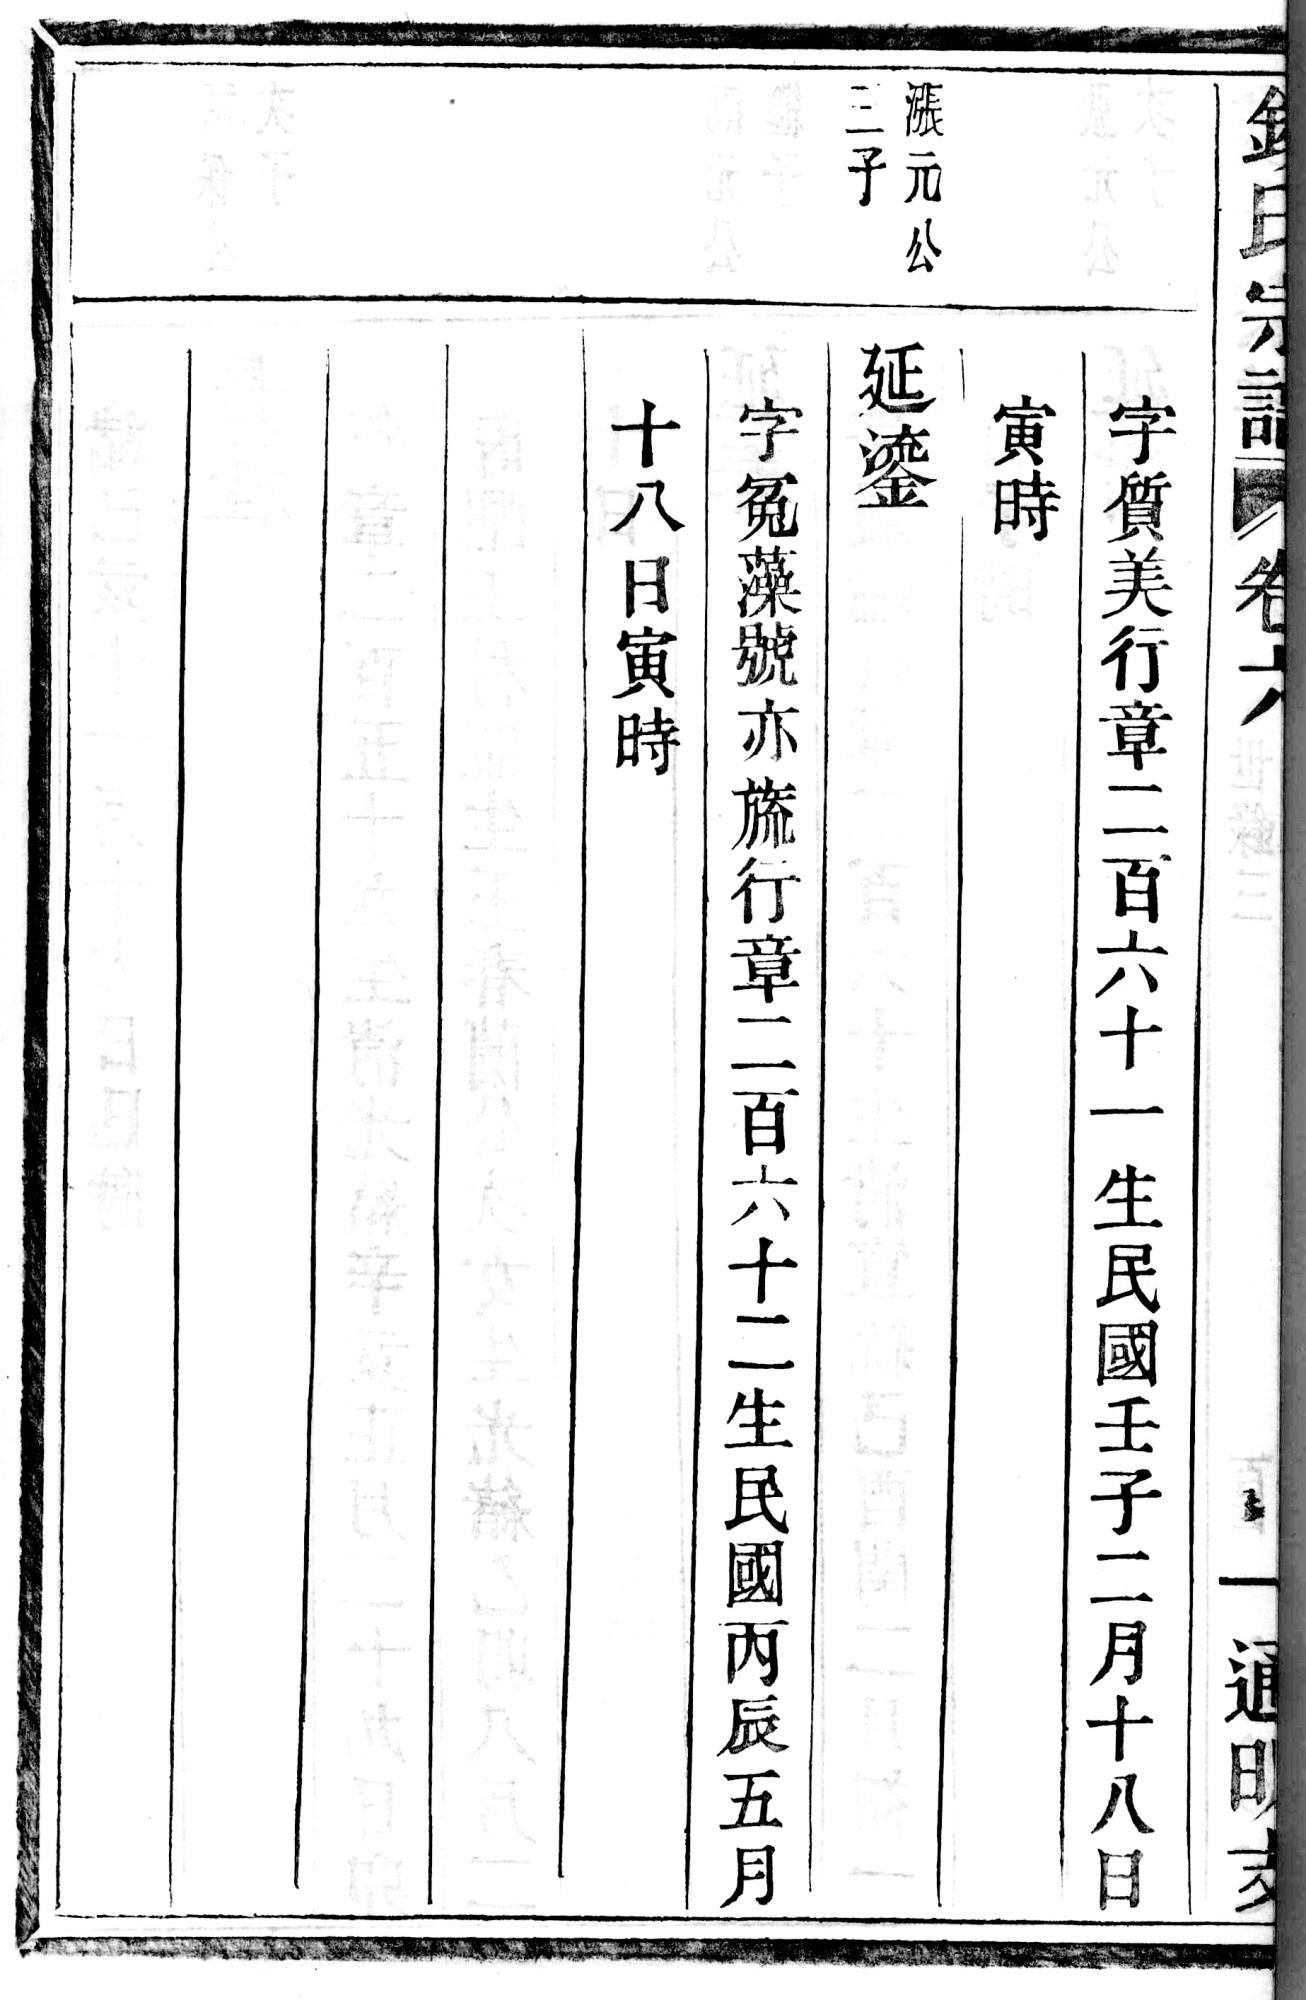 氏宗譜 卷六 通明支
字質美行章二百六十一生民國壬子二月十八日
寅時
漲元公
三子
延鎏
字冕藻號亦旒行章二百六十二生民國丙辰五月
十八日寅時